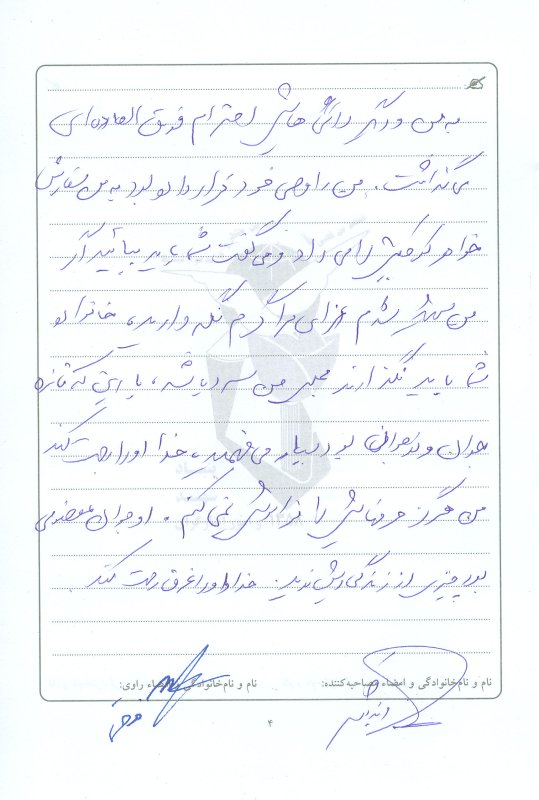 به من و دیگر دائی هایش احترام فوق العاده ای
می گذاشت. من را وصی خود قرار داده بود به من سفارش
خواهر کوچکش را می داد و می گفت شما باید بیائید اگر
من شهید شدم عزای مرا گرم نگه دارید، خانواده
شما باید نگذارند مجلس من سرد باشد، با این که تازه
جوان و نوجوانی بود بسیار می فهمید، خدا او را رحمت کند
من هرگز حرفهایش را فراموش نمی کنم. او جوان معصومی
بود چیزی از زندگی اش ندید. خداوند او را غرق رحمت کند.
نام و نام خانوادگی و امضاء مصاحبه کننده:
نام و نام خانوادگی و امضاء راوی:
۴